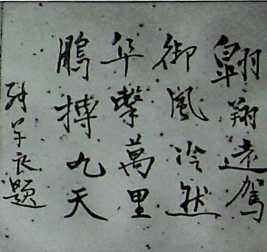 翺翔遠駕
御風泠然
隼擊萬里
鵬搏九天
題